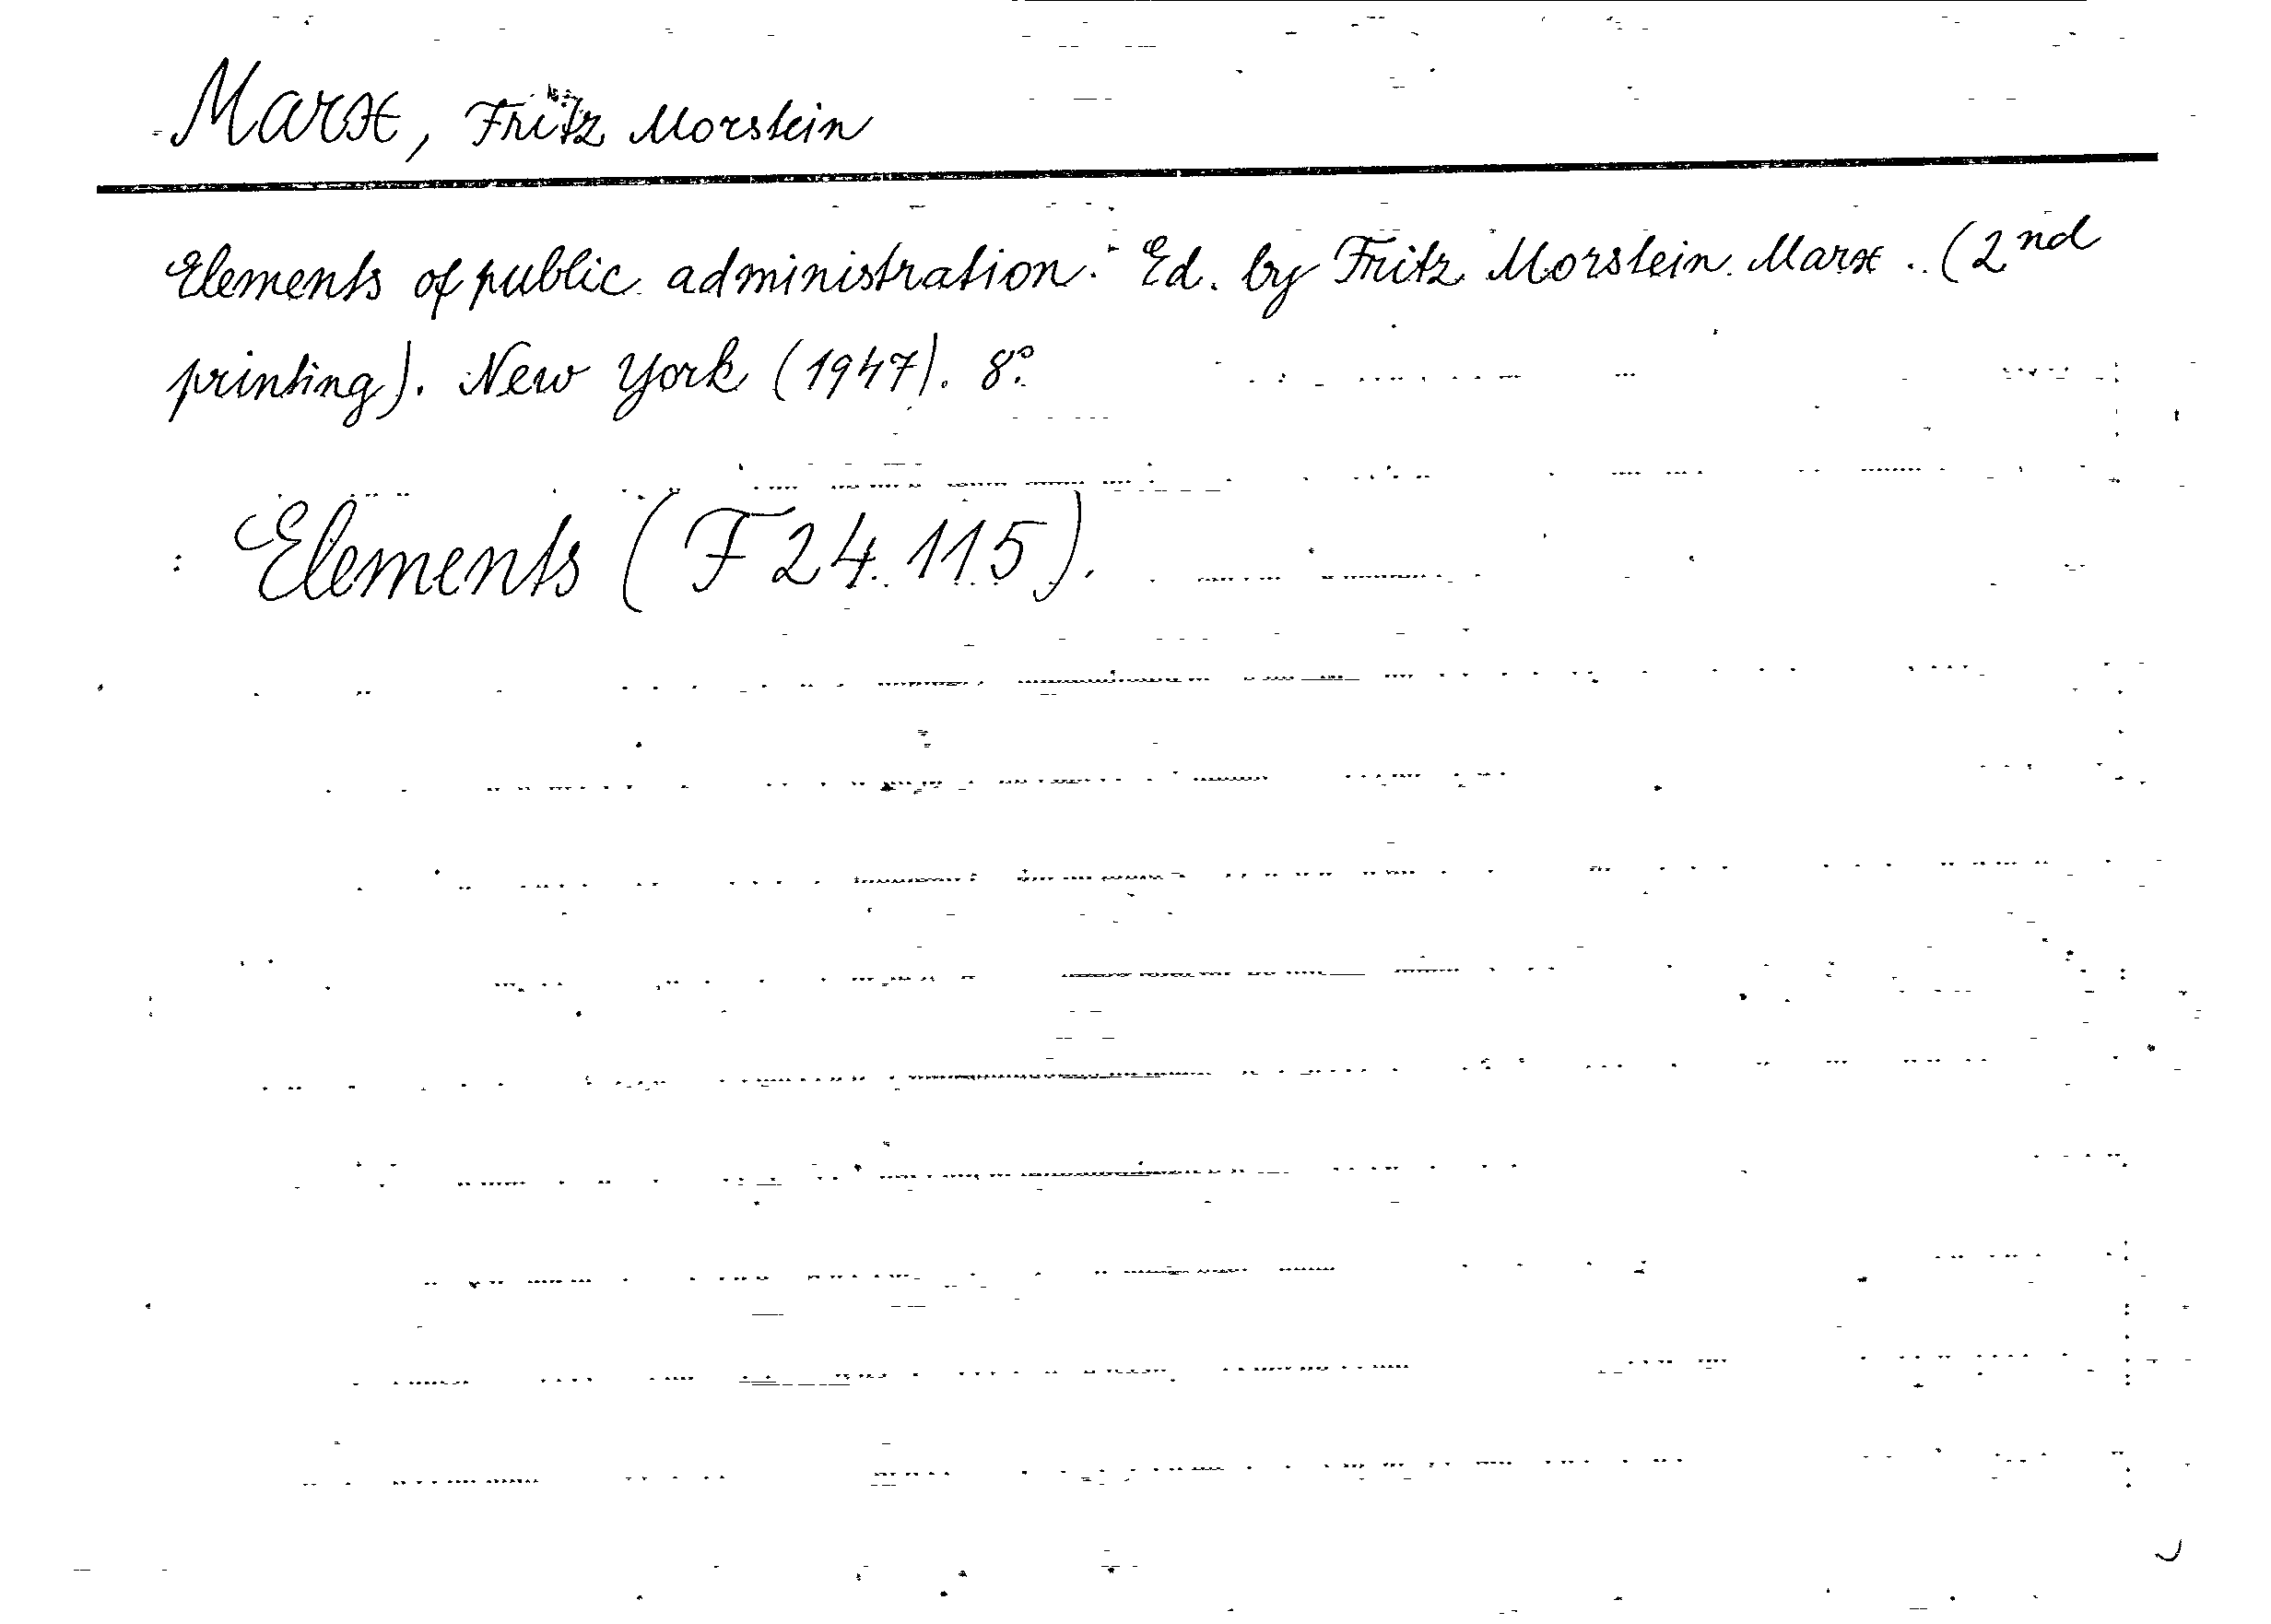 Marx, Fritz Morstein
Elements of public administration. Ed. by Fritz Morstein Marx. (2nd
printing). New York (1947). 8°.
: Elements (F 24.115).